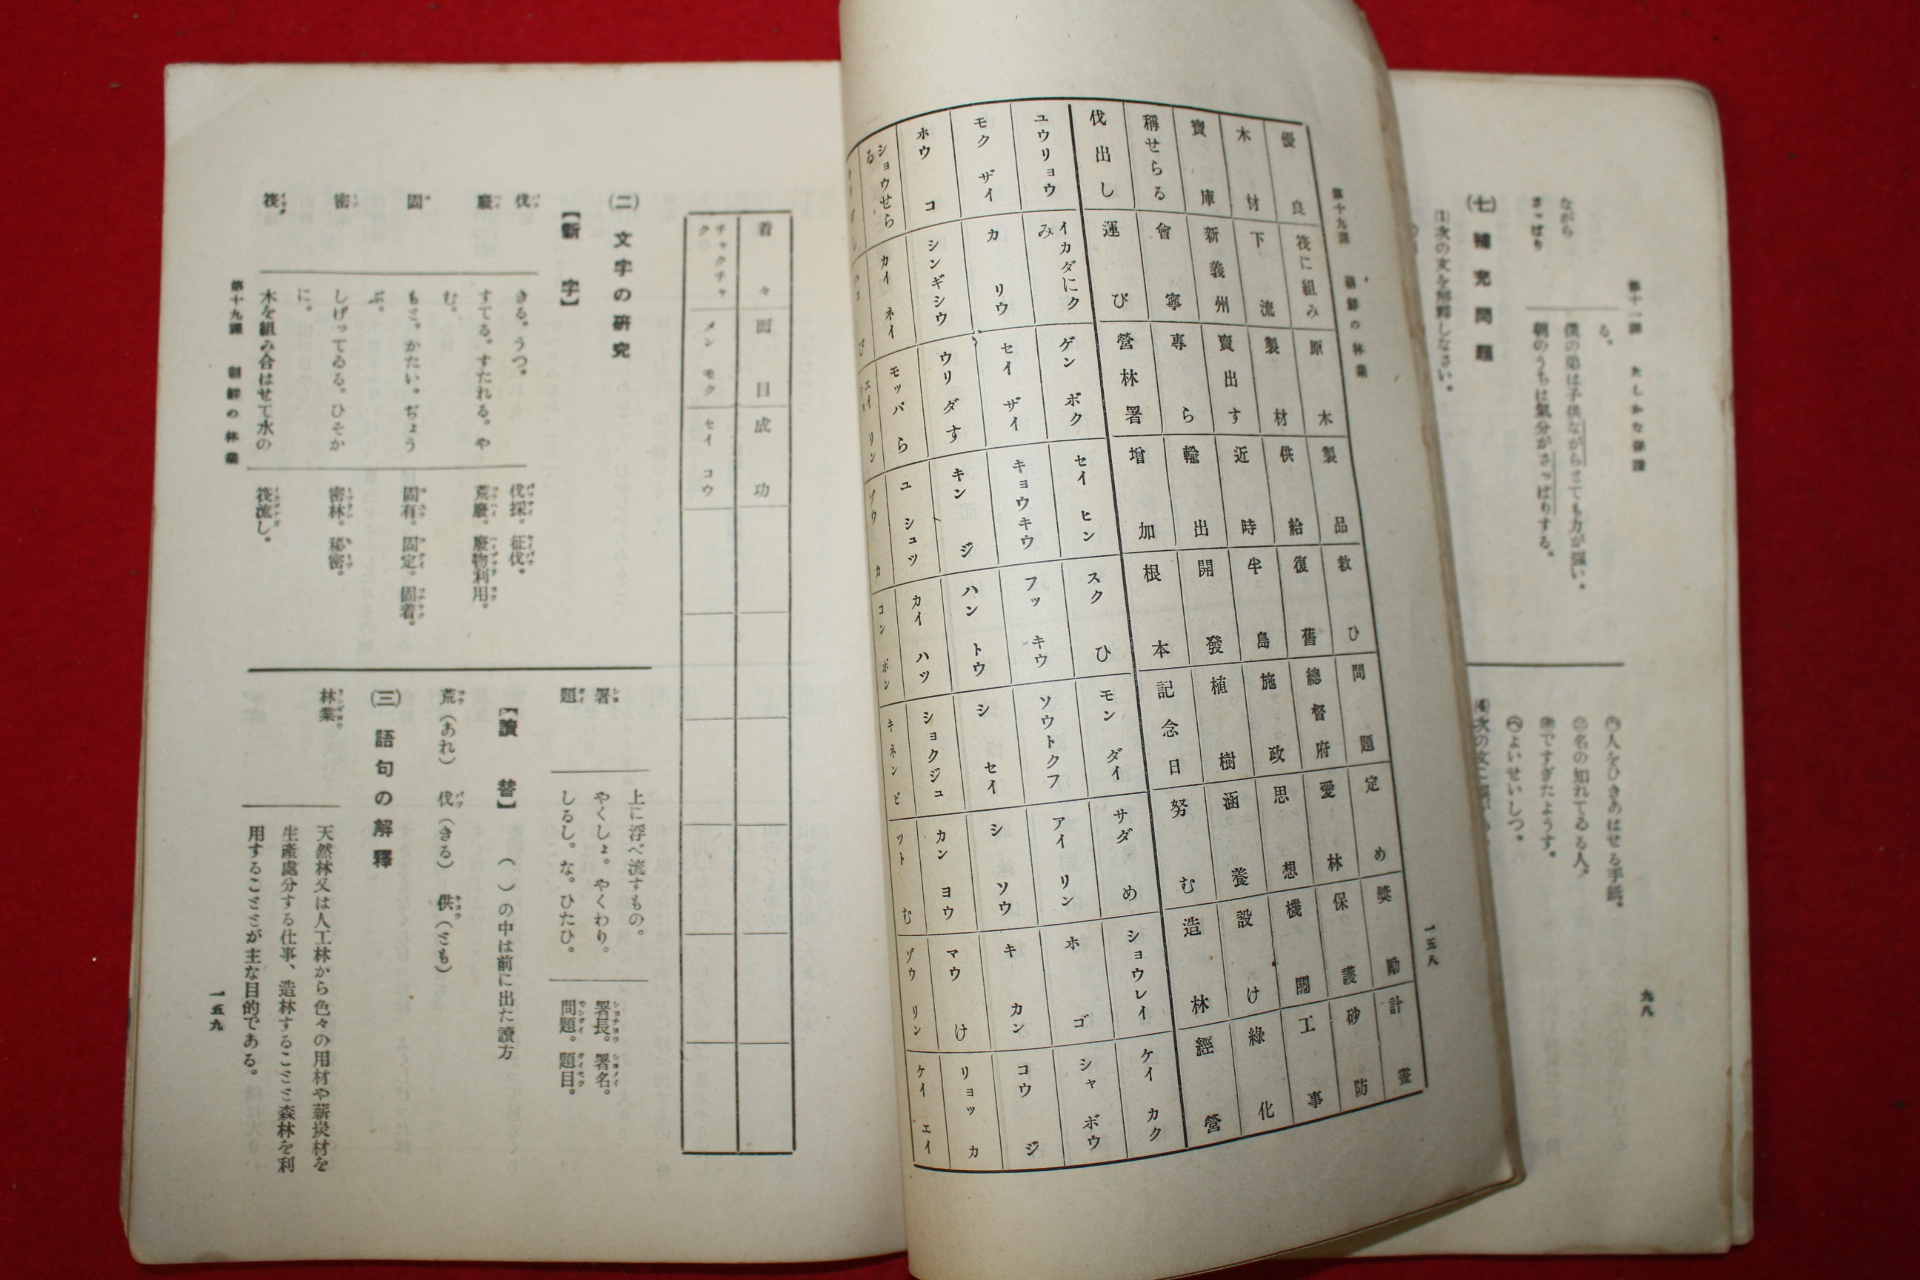 第十一課
ながら
さっぱり
る。
僕の弟は子供ながらとても力が强い。
朝のうちは氣分がさっぱりする。
㈦ 補充問題
⑴次の文を解釋しなさい。
人をひきあはせる手紙。
名の知れてゐる人。
ですぎたようす。
よいせいしつ。
九八
第十九課 朝鮮の林業
一五八
優良 筏に組み 原木 製品 救ひ 問題 定め 奬勵 計畫
木材 下流 製材 供給 復舊 總督府 愛林 保護 砂防
寶庫 新義州 賣出す 近時 半島 施政 思想 機關 工事
稱せらる 會寧 專ら 輸出 開發 植樹 涵養 設け 綠化
伐出し 運び 營林署 增加 根本 記念日 努む 造林 經營
ユウリョウ イカダにクみ ゲンボク セイヒン スクひ モンダイ サダめ ショウレイ ケイカク
モクザイ カリウ セイザイ キョウキウ フッキウ ソウトクフ アイリン ホゴ シャボウ
ホウコ シンギシウ ウリダす キンジ ハントウ シセイ シソウ キカン コウジ
ショウせらる カイネイ モッパら ユシュツ カイハツ ショクジュ カンヨウ マウけ リョッカ
ゾウカ コンポン キネンビ ツトむ ゾウリン ケイエイ
着々 面目 成功
チャクチャク メンモク セイコウ
㈡ 文字の硏究
【新字】
伐 きる。うつ。 伐採。征伐。
廢 すてる。すたれる。や
む。 荒廢。廢物利用。
固 もと。かたい。ぢょう
ぶ。 固有。固定。固着。
密 しげってゐる。ひそか
に。 密林。秘密。
筏 木を組み合はせて水の 筏流し。
上に浮べ流すもの。
署 やくしょ。やくわり。 署長。署名。
題 しるし。な。ひたひ。 問題。題目。
【讀替】 ( )の中は前に出た讀方
荒(あれ) 伐(きる) 供(とも)
㈢ 語句の解釋
林業 天然林又は人工林から色々の用材や薪炭材を
生產處分する仕事、造林することと森林を利
用することとが主な目的である。
第十九課 朝鮮の林業
一五九